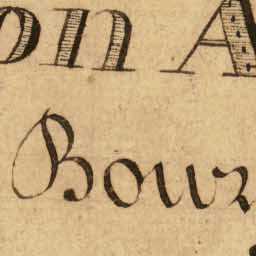 on A
Bour